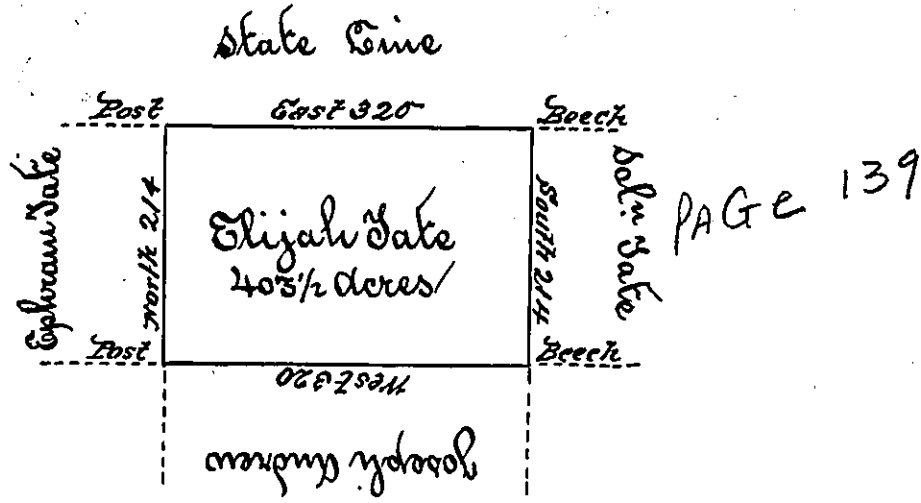 State Line
Post East 320 Beech
Ephraim Tate
North 214
Elijah Tate
403 1/2 Acres
South 214
Tate
PAGe 139
Post Beech
West 320
Joseph Andrew